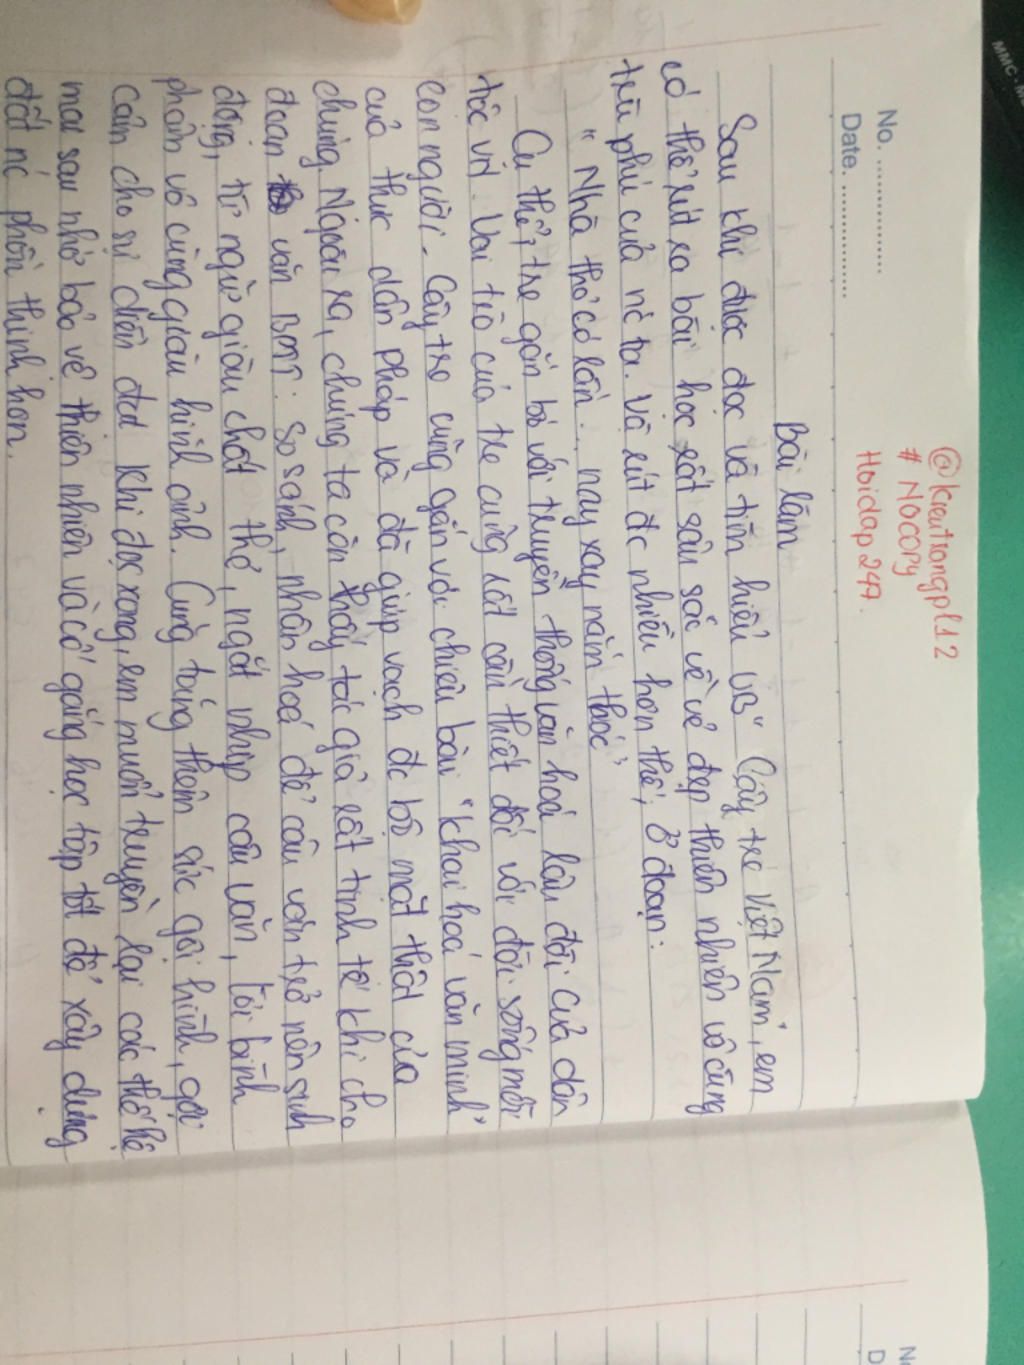 @kieutrangpl12
# Nocopy
Hoidap247.
No. ................
Date. ................
Bài làm
Sau khi được đọc và tìm hiểu VB " Cây tre Việt Nam", em
có thể rút ra bài học rất sâu sắc về vẻ đẹp thiên nhiên vô cùng
trù phú của nc ta. Và rút đc nhiều hơn thế, ở đoạn:
" Nhà thơ có lần ... nay xay nắm thóc"
Cụ thể, tre gắn bó với truyền thống văn hoá lâu đời của dân
tộc VN. Vai trò của tre cũng rất cần thiết đối với đời sống mỗi
con người. Cây tre cũng gắn với chiêu bài "khai hoá văn minh"
của thực dân Pháp và đã giúp vạch đc bộ mặt thật của
chúng. Ngoài ra, chúng ta còn thấy tác giả rất tinh tế khi cho
đoạn văn BPTT: So sánh, nhân hoá để câu văn trở nên sinh
động, từ ngữ giàu chất thơ, ngắt nhịp câu văn, lời bình
phẩm vô cùng giàu hình ảnh. Cũng tăng thêm sức gợi hình, gợi
cảm cho sự diễn đạt. Khi đọc xong, em muốn truyền lại các thế hệ
mai sau nhớ bảo vệ thiên nhiên và cố gắng học tập tốt để xây dựng
đất nc phồn thịnh hơn.
MMC